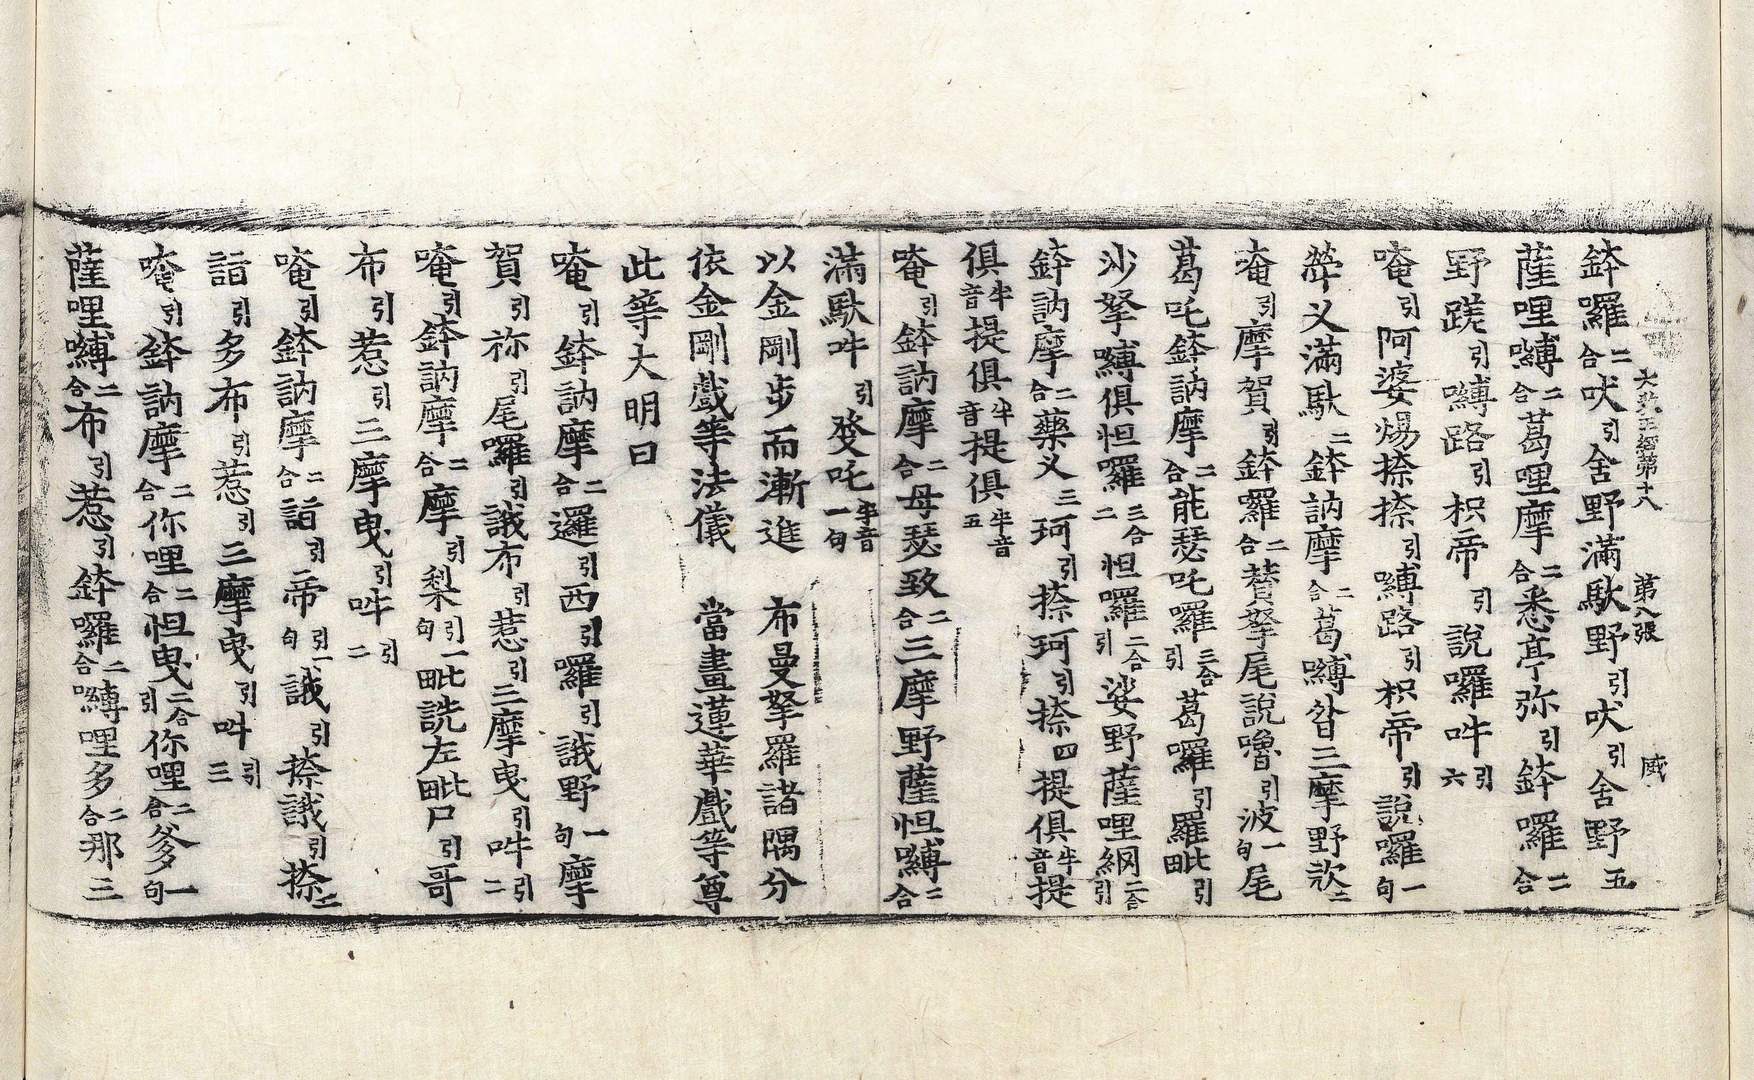 大敎王經第十八 第八張 威
鉢囉二合吠引舍野滿馱野引吠引舍野五
薩哩嚩二合葛哩摩二合悉亭弥引鉢囉二合
野蹉引嚩路引枳帝引說囉吽引六
唵引阿婆煬捺捺引嚩路引枳帝引說囉一句
滿馱二鉢訥摩二合葛嚩
唵引摩賀引鉢囉二合賛拏尾說嚕引波一句尾
葛吒鉢訥摩二合能瑟吒囉三合引葛囉引羅毗引
沙拏嚩俱怛囉三合二怛囉二合引娑野薩哩網二合引
鉢訥摩二合藥义三珂引捺珂引捺四提俱半音提
俱半音提俱半音提俱半音五
唵引鉢訥摩二合母瑟致二合三摩野薩怛嚩二合
滿馱吽引發吒半音一句
以金剛步而漸進 布曼拏羅諸隅分
依金剛戲等法儀 當畫蓮華戲等尊
此等大明曰
唵引鉢訥摩二合邏引西引囉引誐野一句摩
賀引祢引尾囉引誐布引惹引三摩曳引吽引二
唵引鉢訥摩二合摩引梨引一句毗詵左毗尸引哥
布引惹引三摩曳引吽引二
唵引鉢訥摩二合詣引帝引一句誐引捺誐引捺二
詣引多布引惹引三摩曳引吽引三
唵引鉢訥摩二合你哩二合怛曳二合引你哩二合爹一句
薩哩嚩二合布引惹引鉢囉二合嚩哩多二合那三